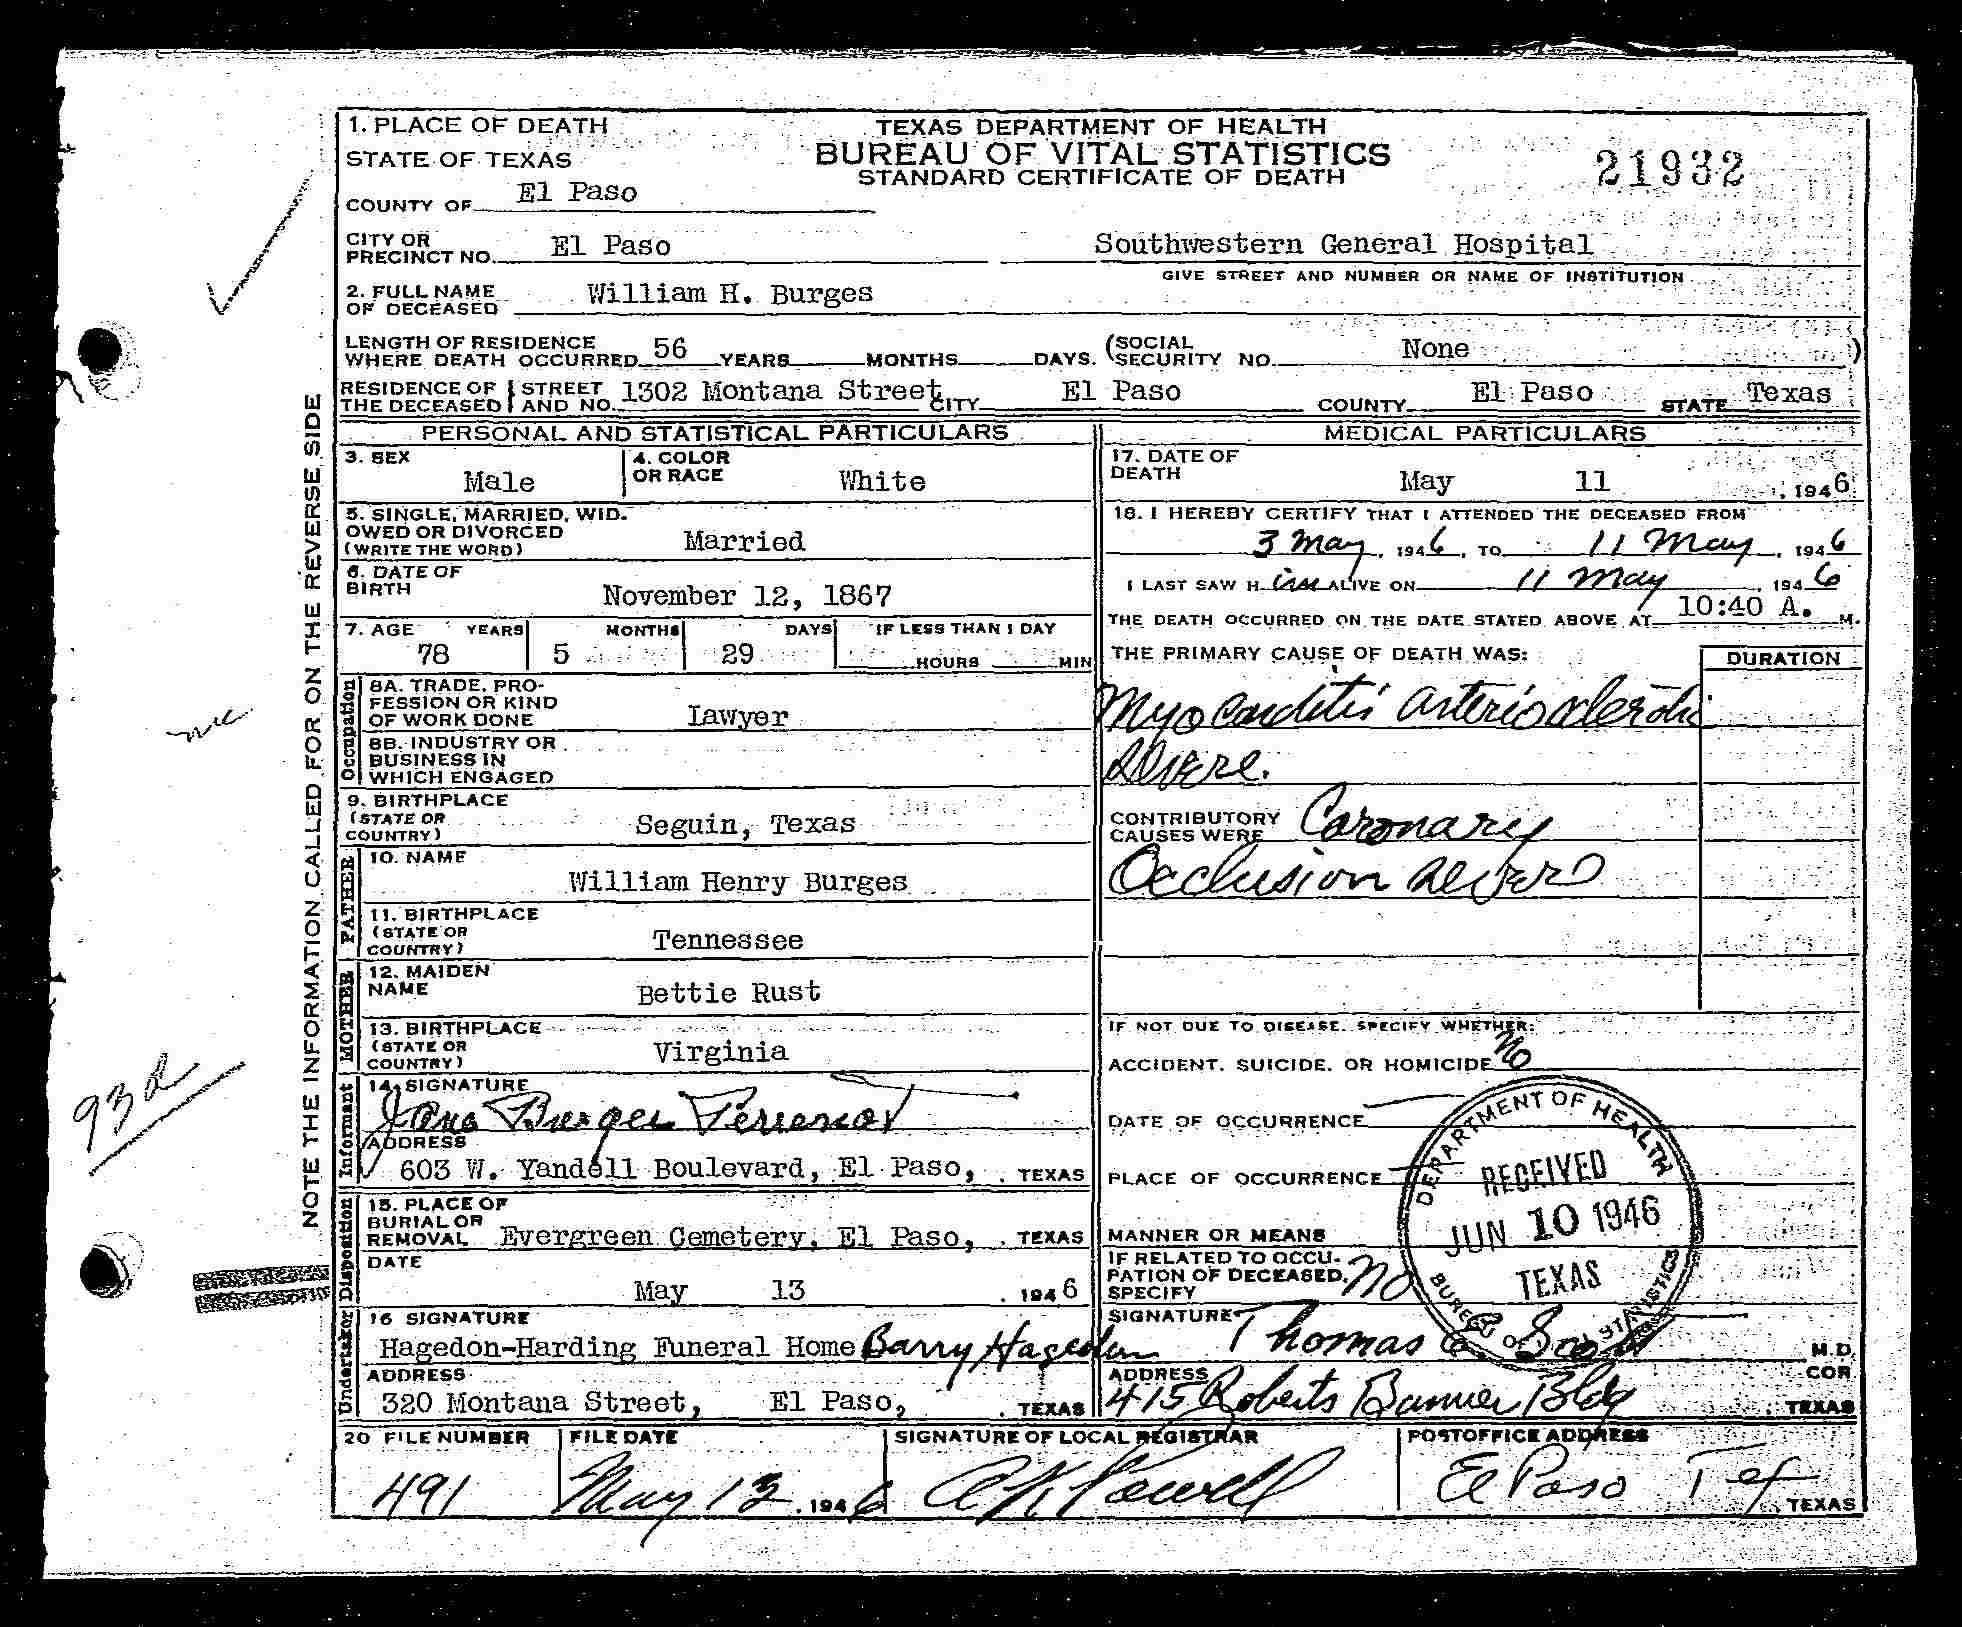 1. PLACE OF DEATH
STATE OF TEXAS
COUNTY OF El Paso
TEXAS DEPARTMENT OF HEALTH
BUREAU OF VITAL STATISTICS
STANDARD CERTIFICATE OF DEATH
21932
CITY OR
PRECINCT NO. El Paso Southwestern General Hospital
GIVE STREET AND NUMBER OR NAME OF INSTITUTION
2. FULL NAME
OF DECEASED William H. Burges
LENGTH OF RESIDENCE
WHERE DEATH OCCURRED 56 YEARS MONTHS DAYS. (SOCIAL
SECURITY NO. None )
RESIDENCE OF
THE DECEASED
STREET
AND NO. 1302 Montana Street, CITY El Paso COUNTY El Paso STATE Texas
PERSONAL AND STATISTICAL PARTICULARS
3. SEX
Male
4. COLOR
OR RACE White
5. SINGLE, MARRIED, WID-
OWED OR DIVORCED
(WRITE THE WORD) Married
6. DATE OF
BIRTH November 12, 1867
7. AGE YEARS MONTHS DAYS IF LESS THAN 1 DAY
78 5 29 HOURS MIN
Occupation
8A. TRADE, PRO-
FESSION OR KIND
OF WORK DONE Lawyer
8B. INDUSTRY OR
BUSINESS IN
WHICH ENGAGED
9. BIRTHPLACE
(STATE OR
COUNTRY) Seguin, Texas
FATHER
10. NAME
William Henry Burges
11. BIRTHPLACE
(STATE OR
COUNTRY) Tennessee
MOTHER
12. MAIDEN
NAME Bettie Rust
13. BIRTHPLACE
(STATE OR
COUNTRY) Virginia
Informant
14. SIGNATURE
Jane Burges Perrenot
ADDRESS
603 W. Yandell Boulevard, El Paso, , TEXAS
Disposition
15. PLACE OF
BURIAL OR
REMOVAL Evergreen Cemetery, El Paso, , TEXAS
DATE
May 13 , 1946
Undertaker
16 SIGNATURE
Hagedon-Harding Funeral Home Barry Hagedon
ADDRESS
320 Montana Street, El Paso, , TEXAS
MEDICAL PARTICULARS
17. DATE OF
DEATH May 11 , 1946
18. I HEREBY CERTIFY THAT I ATTENDED THE DECEASED FROM
3 May , 1946, TO 11 May , 1946
I LAST SAW H im ALIVE ON 11 May , 1946
THE DEATH OCCURRED ON THE DATE STATED ABOVE AT 10:40 A. M.
THE PRIMARY CAUSE OF DEATH WAS: DURATION
Myocarditis arteriosclerotic
severe.
CONTRIBUTORY
CAUSES WERE Coronary
Occlusion severe
IF NOT DUE TO DISEASE, SPECIFY WHETHER:
ACCIDENT, SUICIDE, OR HOMICIDE No
DATE OF OCCURRENCE
PLACE OF OCCURRENCE
MANNER OR MEANS
IF RELATED TO OCCU-
PATION OF DECEASED,
SPECIFY No
SIGNATURE Thomas M.D.
COR
ADDRESS
415 Roberts Banner Bldg , TEXAS
DEPARTMENT OF HEALTH
RECEIVED
JUN 10 1946
TEXAS
BUREAU OF VITAL STATISTICS
20 FILE NUMBER
491
FILE DATE
May 13, 1946
SIGNATURE OF LOCAL REGISTRAR
Powell
POSTOFFICE ADDRESS
El Paso Tex , TEXAS
NOTE THE INFORMATION CALLED FOR ON THE REVERSE SIDE
93d